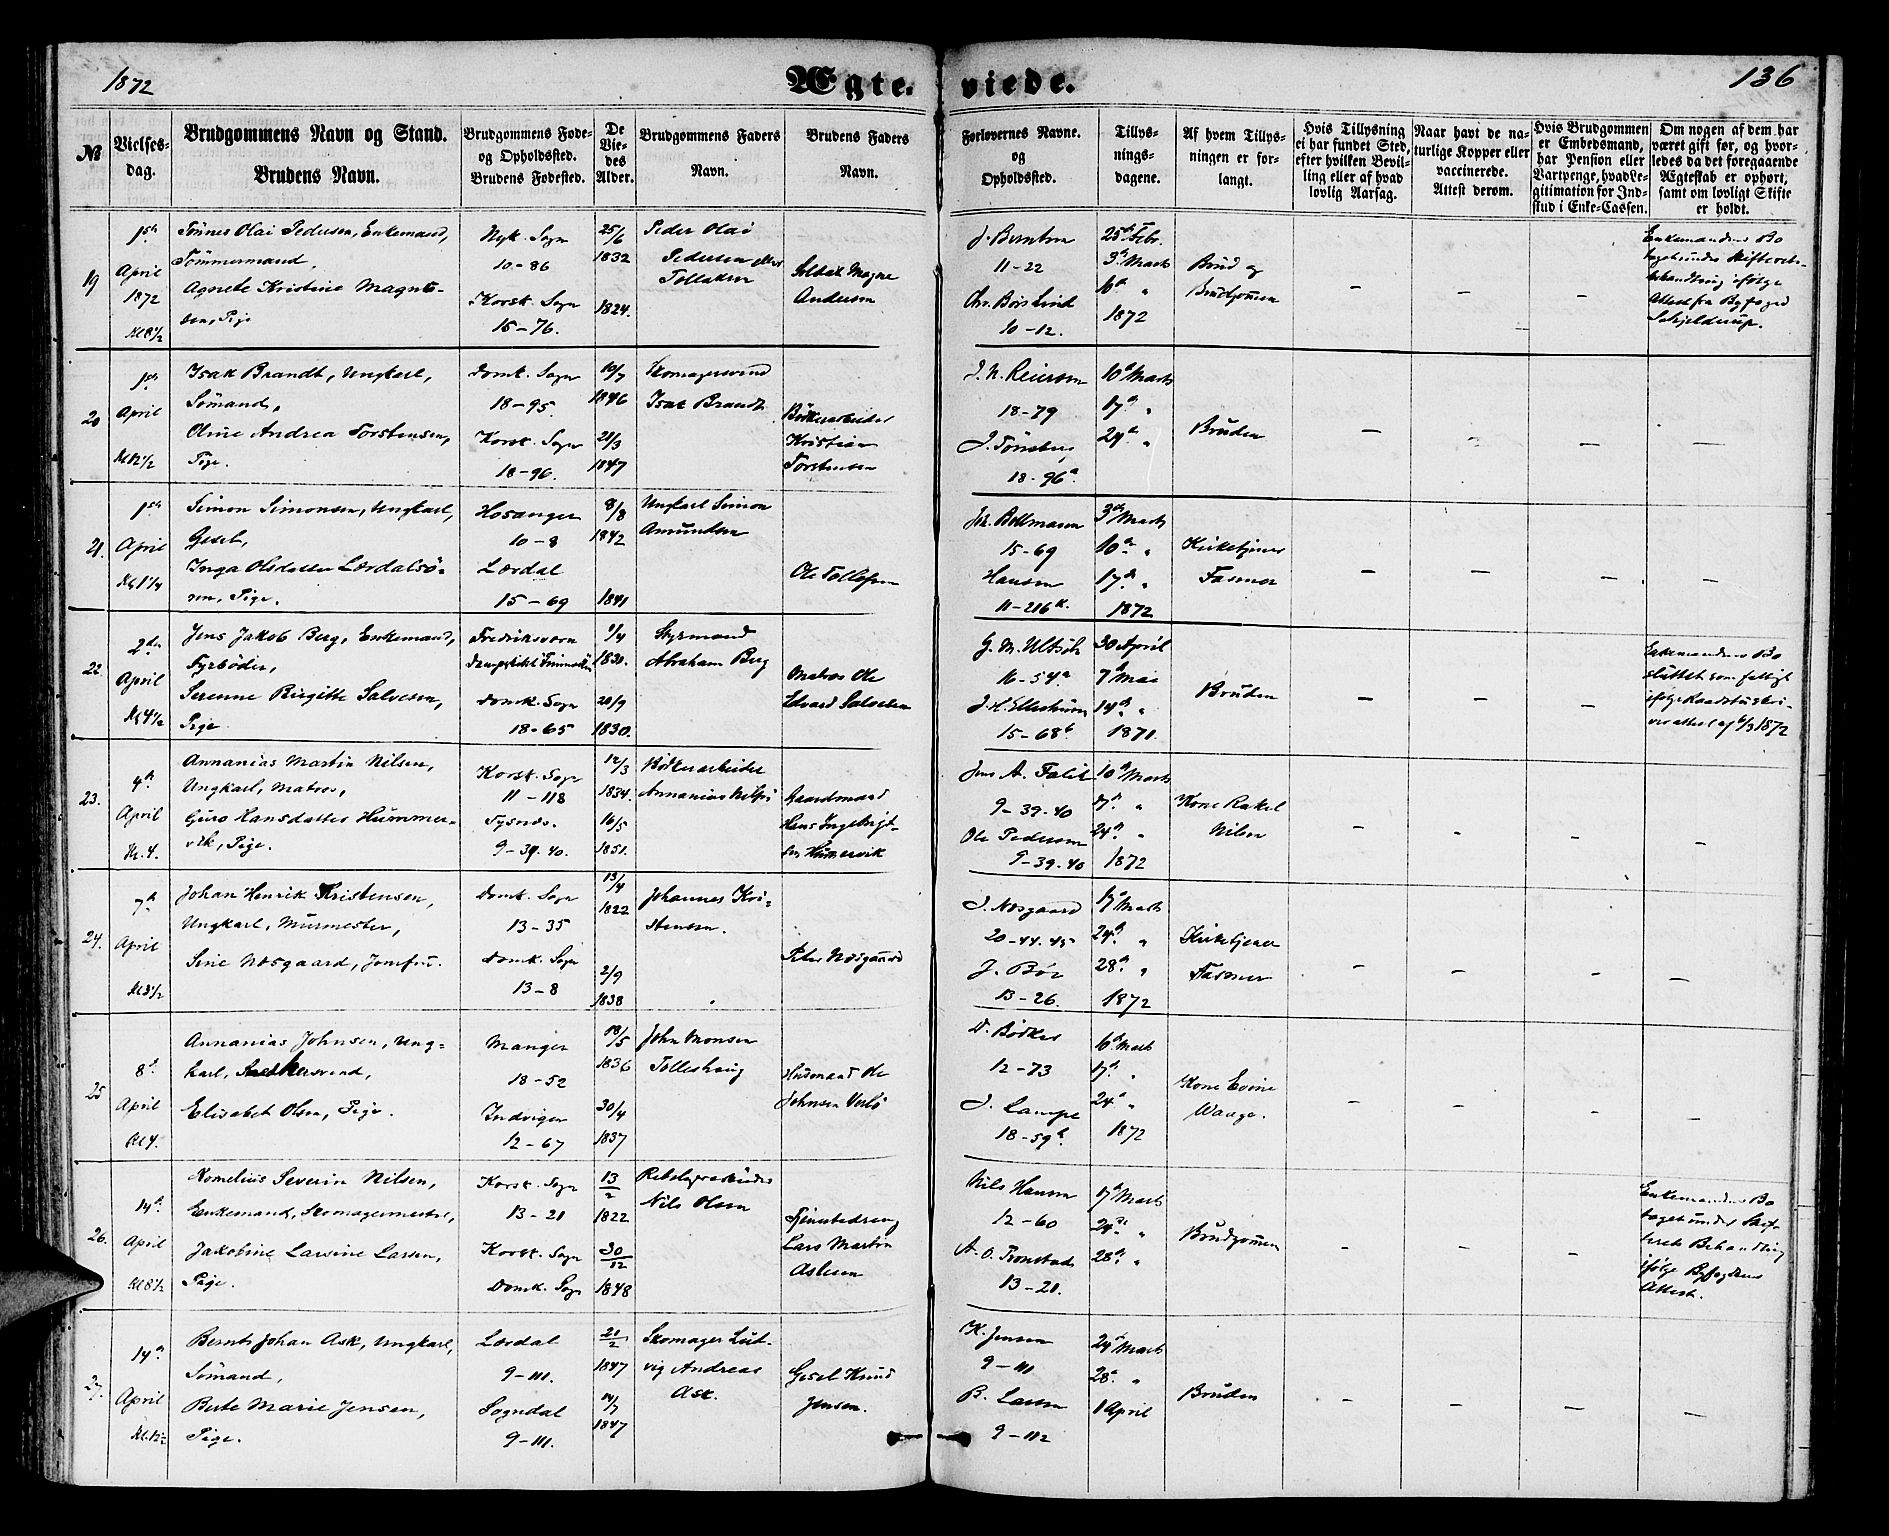 1872
Ægte-
viede.
136
№
Vielses-
dag.
Brudgommens Navn og Stand.
Brudens Navn.
Brudgommens Føde-
og Opholdssted.
Brudens Fødested.
De
Vie-
des
Alder.
Brudgommens Faders
Navn.
Brudens Faders
Navn.
Forlovernes Navne.
og
Opholdssted.
Tillys-
nings-
dagene.
Af hvem Tillys-
ningen er for-
langt.
Hvis Tillysning
ei har fundet Sted,
efter hvilken Bevil-
ling eller af hvad
lovlig Aarsag.
Naar havt de na-
turlige Kopper eller
vaccinerede.
Attest derom.
Hvis Brudgommen
er Embedsmand,
har Pension eller
Vartpenge, hvad Le-
gitimation for Ind-
skud i Enke-Cassen.
Om nogen af dem har
været gift før, og hvor-
ledes da det foregaaende
Ægteskab er ophørt,
samt om lovligt Skifte
er holdt.
19
April
1872
Kl 8½
Tønnes Olai Pedersen, Enkemand,
Tømmermand,
Agnete Kristine Magne-
sen, Pige
Nyk. Sogn
10-86
Korsk. Sogn
15-76.
25/6
1832
1824.
Peder Olai
Pedersen eller
Tollaksen
Magne
Andersen
J. Berntsen
11-22
Chr. Børs Lind
10-12.
25d Febr.
3d Marts
1872
Brud og
Brudgommen
Enkemandens Bo
ifølge
Attest fra Byfoged
Schjelderup.
20
April
Kl 12½
Isak Brandt, Ungkarl,
Sømand,
Oline Andrea Torstensen,
Pige.
Domk. Sogn
18-95.
Korsk. Sogn
18-96.
10/7
1846
21/3
1847
Skomagersvend
Isak Brandt
Bødkerarbeider
Kristian
Torstensen
J. N. Reiersen
18-79
J. Tønsberg
18-96a.
10d Marts
17d "
24d "
Bruden
21.
April
Simon Simonsen, Ungkarl,
Gesel,
Inga Olsdatter Lærdalsø-
ren, Pige.
Hosanger
10-8
Lærdal
15-69
8/8
1842
1841
Ungkarl Simon
Amundsen
Ole Tollefsen
Joh. Bollmann
15-69
Hansen
11-216k.
3d Marts
10d "
17d "
1872
Kirketjener
Fasmer
22.
2den
April
Kl 4½
Jens Jakob Berg, Enkemand,
Fyrbøder,
Serenne Birgitte Salvesen,
Pige
Fredriksværn
Domk. Sogn
18-65
1/4
1830.
20/9
1830.
Styrmand
Abraham Berg
Matros Ole
Edvard Salvesen
G. M. Ulrich
16-54a
J. H. Ellertsen
15-68b.
30 April
7d Mai
14d "
1871.
Bruden
Enkemandens Bo
sluttet som fallit
ifølge Raadstueskri-
verattest af 6/3 1872
23.
4d
April
Kl. 4.
Annanias Martin Nilsen,
Ungkarl, Matros,
Guro Hansdatter Hummer-
vik, Pige.
Korsk. Sogn
11-118
Tysnes.
9-39.40.
12/3
1834.
16/5
1851.
Bødkerarbeider
Annanias Nilsen
Gaardmand
Hans Ingebrigt-
sen Hummervik
Jens A. Falik
9-39.40
Ole Pedersen
9-39.40
10d Marts
17d "
24d "
1872
Kone Rakel
Nilsen
24.
7d
April
Kl 8½
Johan Henrik Kristensen,
Ungkarl, Murmester,
Sine Næsgaard, Jomfru.
Domk. Sogn
13-35
Domk. Sogn
13-8
13/4
1822
2/9
1838
Johannes Kri-
stensen.
Peter Næsgaard
J. Næsgaard
20-44.45
J. Bøe
13-26.
17d Marts
24d "
28d "
1872
Kirketjener
Fasmer
25
8d
April
Kl 4.
Annanias Johnsen, Ung-
karl, Snedkersvend,
Elisabet Olsen, Pige.
Manger
18-52
Indvigen
12-67
18/5
1836
30/4
1837
John Monsen
Tolleshaug
Husmand Ole
Johnsen
D. Bødker
12-73
J. Lampe
18-59b.
17d "
24d "
1872
Kone Evine
Waage.
26.
14d
April
Kl 8½
Kornelius Severin Nilsen,
Enkemand, Skomagermester,
Jakobine Lavine Larsen,
Pige.
Korsk. Sogn
13-21
Korsk. Sogn
Domk. Sogn
13/2
1822
30/12
1848
Rebslagerarbeider
Nils Olsen
Tjenestedreng
Lars Martin
Aslesen
Nils Hansen
12-60
A. O. Tronstad
13-21.
17d Marts
24d "
28d "
Brudgommen
Enkemandens Bo
taget under Skif-
terets Behandling
ifølge Byfogdens
Attest.
27.
14d
April
Kl. 12½
Bernt Johan Ask, Ungkarl,
Sømand,
Berte Marie Jensen,
Pige.
Lærdal
9-111.
Sogndal
9-111.
21/2
1847
14/7
1847
Skomager Lud-
vig Andreas
Ask.
Gesel Knud
Jensen.
K. Jensen
9-111
B. Larsen
9-112
24d Marts
28d "
1 April
Bruden